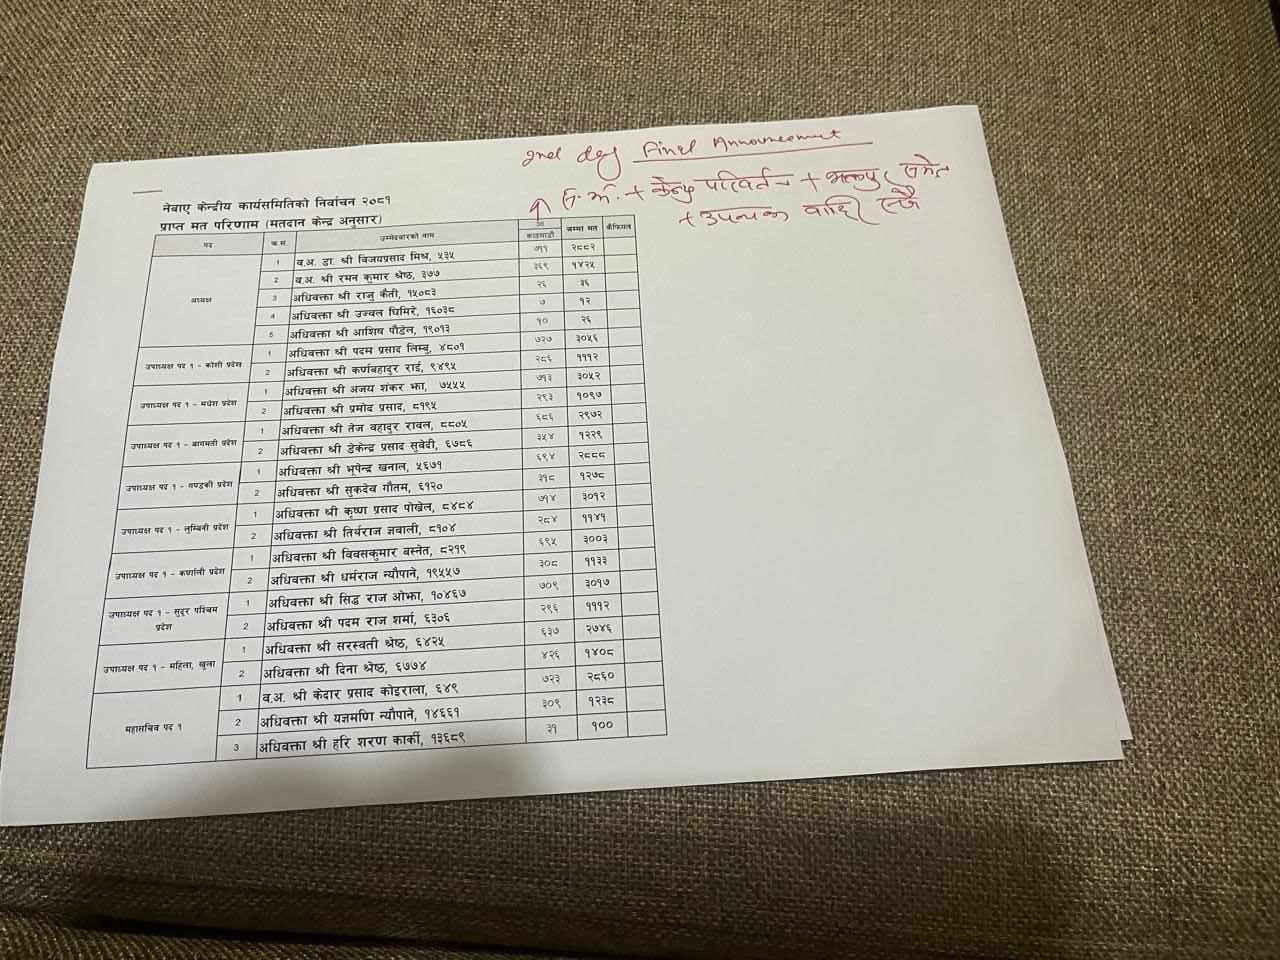 2nd day Final Announcement
+ केन्द्र परिवर्तन + भक्तपुर समेत
+ उपत्यका बाहिर सबै
नेबाए केन्द्रीय कार्यसमितिको निर्वाचन २०८१
प्राप्त मत परिणाम (मतदान केन्द्र अनुसार)
पद क्र.सं. उम्मेदवारको नाम काठमाडौं जम्मा मत कैफियत
अध्यक्ष
1 व.अ. डा. श्री विजयप्रसाद मिश्र, ५३५ ७११ २८८२
2 व.अ. श्री रमन कुमार श्रेष्ठ, ३७७ ३६९ १४२५
3 अधिवक्ता श्री राजु कैती, १५०८३ २६ ३६
4 अधिवक्ता श्री उज्वल घिमिरे, १६०३८ ७ १२
5 अधिवक्ता श्री आशिष पौडेल, १९०१३ १० २६
उपाध्यक्ष पद १ - कोशी प्रदेश
1 अधिवक्ता श्री पदम प्रसाद लिम्बु, ४८०१ ७२७ ३०५६
2 अधिवक्ता श्री कर्णबहादुर राई, ९४९५ २८६ १११२
उपाध्यक्ष पद १ - मधेश प्रदेश
1 अधिवक्ता श्री अजय शंकर झा, ७५५५ ७१३ ३०५२
2 अधिवक्ता श्री प्रमोद प्रसाद, ८१९५ २९३ १०९७
उपाध्यक्ष पद १ - बागमती प्रदेश
1 अधिवक्ता श्री तेज बहादुर रावल, ८८०५ ६८६ २९७२
2 अधिवक्ता श्री डेकेन्द्र प्रसाद सुवेदी, ६७८६ ३५४ १२२९
उपाध्यक्ष पद १ - गण्डकी प्रदेश
1 अधिवक्ता श्री भूपेन्द्र खनाल, ५६७१ ६९४ २८८८
2 अधिवक्ता श्री सुकदेव गौतम, ६१२० ३१८ १२७८
उपाध्यक्ष पद १ - लुम्बिनी प्रदेश
1 अधिवक्ता श्री कृष्ण प्रसाद पोखेल, ८४८४ ७१४ ३०१२
2 अधिवक्ता श्री तिर्थराज ज्ञवाली, ८१०४ २८४ ११४१
उपाध्यक्ष पद १ - कर्णाली प्रदेश
1 अधिवक्ता श्री बिवसकुमार बस्नेत, ८२१९ ६९५ ३००३
2 अधिवक्ता श्री धर्मराज न्यौपाने, १९५५७ ३०८ ११३३
उपाध्यक्ष पद १ - सुदुर पश्चिम प्रदेश
1 अधिवक्ता श्री सिद्ध राज ओझा, १०४६७ ७०९ ३०१७
2 अधिवक्ता श्री पदम राज शर्मा, ६३०६ २९६ १११२
उपाध्यक्ष पद १ - महिला, खुला
1 अधिवक्ता श्री सरस्वती श्रेष्ठ, ६४२५ ६३७ २७४६
2 अधिवक्ता श्री दिना श्रेष्ठ, ६७७४ ४२६ १४०८
महासचिव पद १
1 व.अ. श्री केदार प्रसाद कोइराला, ६४९ ७२३ २८६०
2 अधिवक्ता श्री यज्ञमणि न्यौपाने, १४६६१ ३०९ १२३८
3 अधिवक्ता श्री हरि शरण कार्की, १३६८९ ३१ १००